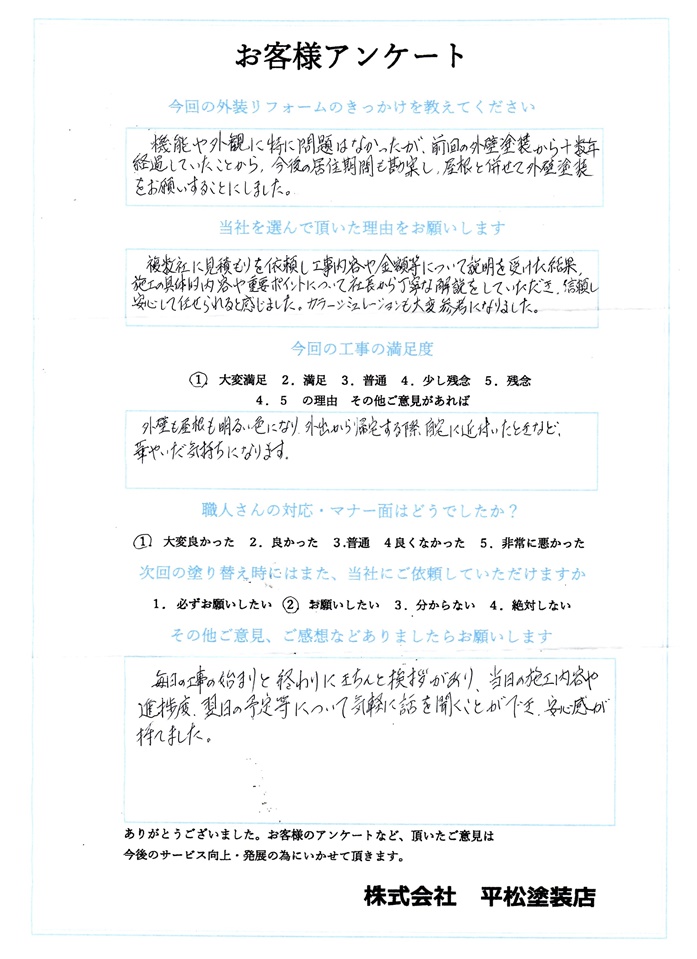 お客様アンケート
今回の外装リフォームのきっかけを教えてください
機能や外観に特に問題はなかったが、前回の外壁塗装から十数年
経過していたことから、今後の居住期間も勘案し、屋根と併せて外壁塗装
をお願いすることにしました。
当社を選んで頂いた理由をお願いします
複数社に見積もりを依頼し工事内容や金額等について説明を受けた結果、
施工の具体的内容や重要ポイントについて社長から丁寧な解説をしていただき、信頼し
安心して任せられると感じました。カラーシミュレーションも大変参考になりました。
今回の工事の満足度
①  大変満足  2．満足  3．普通  4．少し残念  5．残念
4．5  の理由  その他ご意見があれば
外壁も屋根も明るい色になり、外出から帰宅する際、自宅に近付いたときなど、
華やいだ気持ちになります。
職人さんの対応・マナー面はどうでしたか？
①  大変良かった  2．良かった  3.普通  4良くなかった  5．非常に悪かった
次回の塗り替え時にはまた、当社にご依頼していただけますか
1．必ずお願いしたい  ②  お願いしたい  3．分からない  4．絶対しない
その他ご意見、ご感想などありましたらお願いします
毎日の工事の始まりと終わりにきちんと挨拶があり、当日の施工内容や
進捗度、翌日の予定等について気軽に話を聞くことができ、安心感が
持てました。
ありがとうございました。お客様のアンケートなど、頂いたご意見は
今後のサービス向上・発展の為にいかせて頂きます。
株式会社  平松塗装店